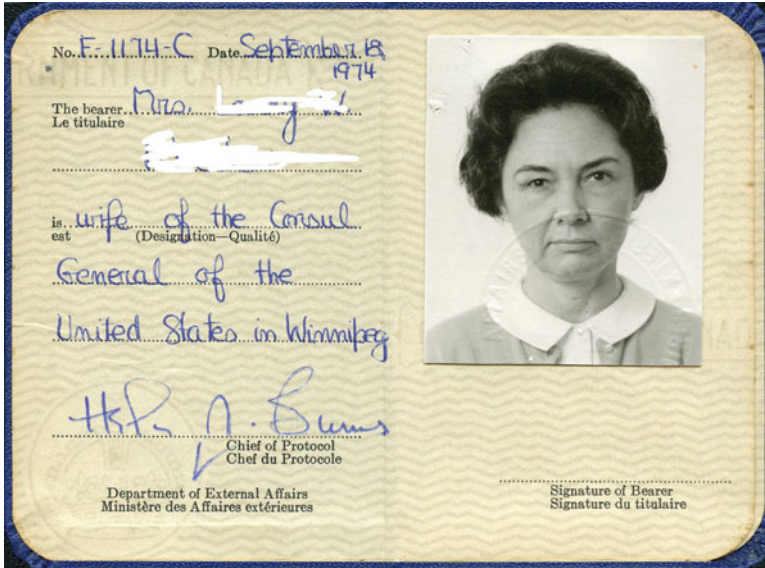 No. F-1174-C Date September 18,
1974
The bearer Mrs.
Le titulaire
is wife of the Consul
est (Designation—Qualité)
General of the
United States in Winnipeg
Chief of Protocol
Chef du Protocole
Department of External Affairs
Ministère des Affaires extérieures
Signature of Bearer
Signature du titulaire